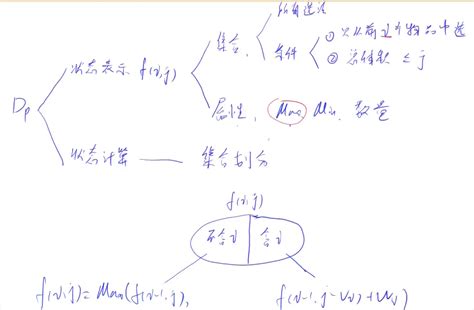 所有选法
集合
条件
① 只从前i个物品中选
② 总体积 ≤ j
状态表示 f(i,j)
属性: Max, Min, 数量
Dp
状态计算 — 集合划分
f(i,j)
不含i 含i
f(i,j)=Max(f(i-1,j), f(i-1,j-vi)+wi)